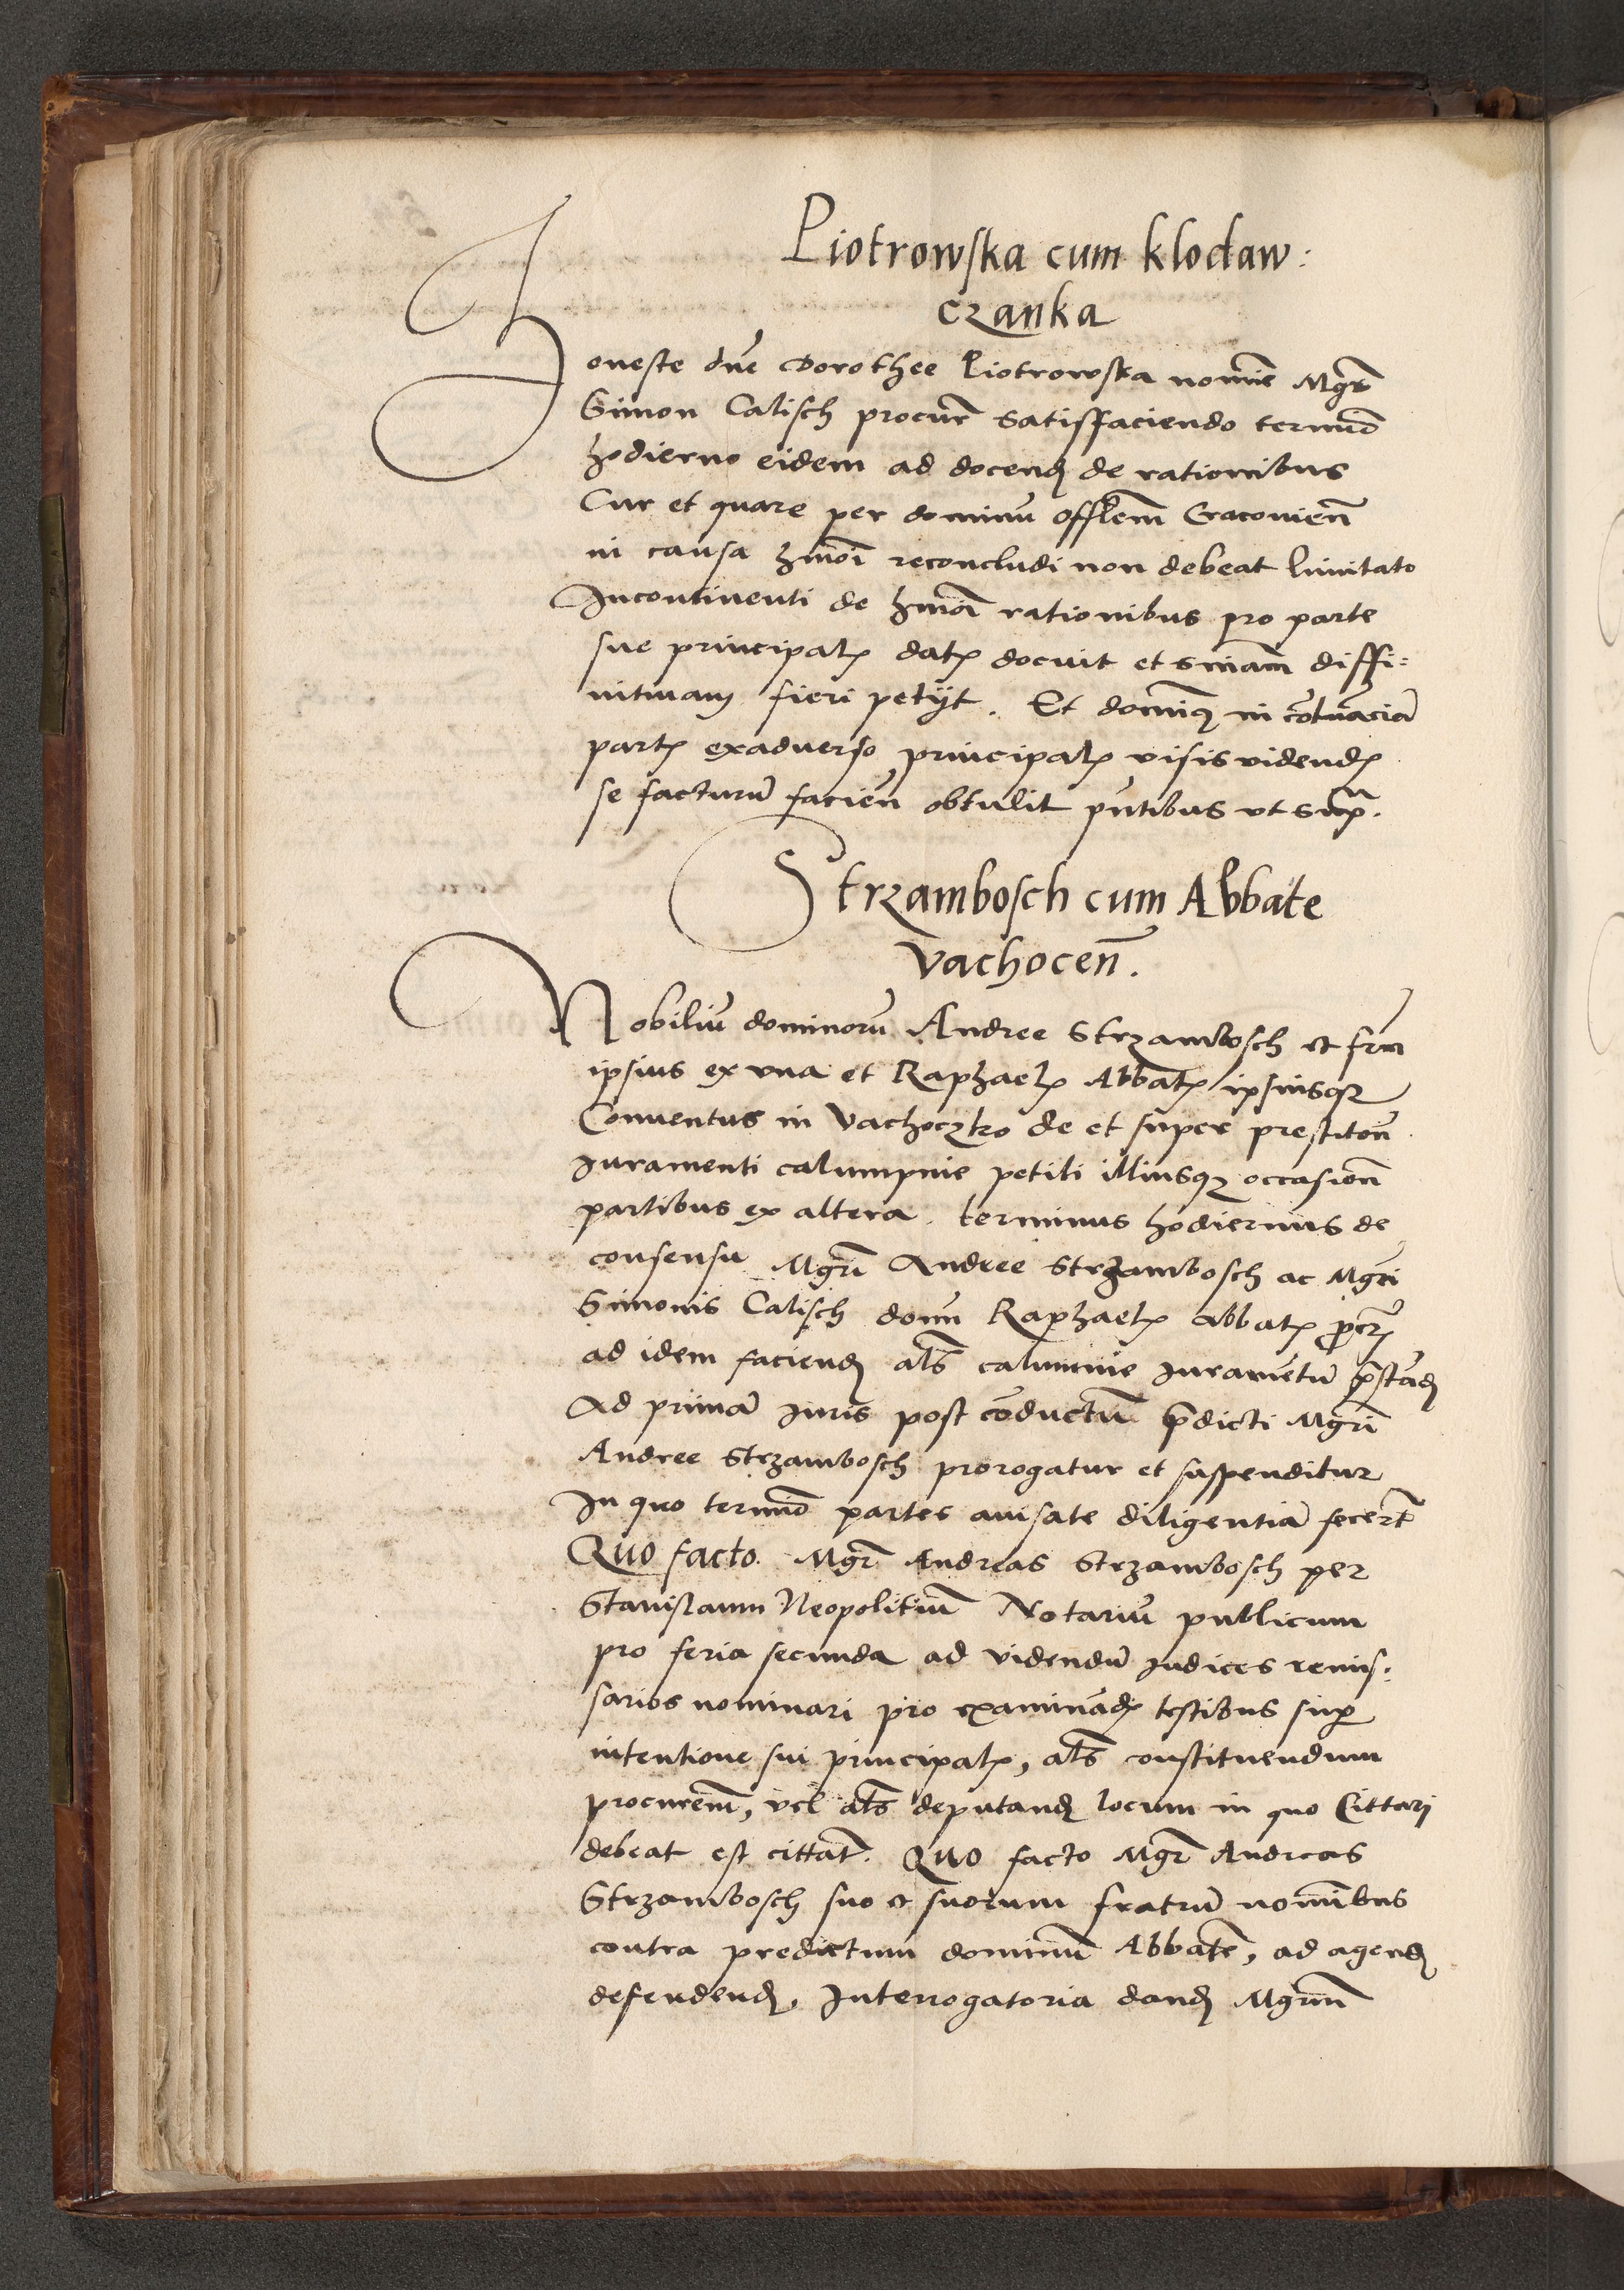 Piotrowska cum klodaw:
czanka
Honeste dne Dorothee Piotrowska nomine Mgr
Simon Calisch procur satisfaciendo termino
hodierno eidem ad docend de rationibus
Cur et quare per dominu offlem Cracovien
in causa hmoi reconcludi non debeat limitato
Incontinenti de hmoi rationibus pro parte
sue principal dat docuit et sniam diffi:
nitivam fieri petijt. Et dominus in cotumacia
part exadverso principal visis vidend
se facturu facien obtulit pntibus ut supra.
Strzambosch cum Abbate
Vachocen.
Nobiliu dominoru Andree Strzambosch et frm
ipsius ex una et Raphael Abbat ipsiusque
Conventus in Vachoczko de et super prestiton
Iuramenti calumpnie petiti illiusque occasione
partibus ex altera. terminus hodiernus de
consensu Mgri Andree Strzambosch ac Mgri
Simonis Calisch domi Raphael abbat procr
ad idem faciend als calumnie Iuramentu prestand
Ad prima Iuris post conductum predicti Mgri
Andree Strzambosch prorogatur et suspenditur
In quo termino partes avisate diligentia fecert
Quo facto. Mgr Andreas Strzambosch per
Stanislaum Neopolitium Notariu publicum
pro feria secunda ad videndu Iudices remis:
sarios nominari pro examinand testibus super
intentione sui principal, als constituendum
procurem, vel als deputand locum in quo Cittari
debeat est cittat. Quo facto Mgr Andreas
Strzambosch suo et suorum fratru nominibus
contra predictum dominu Abbate, ad agend
defendend, Interrogatoria dand Mgrum